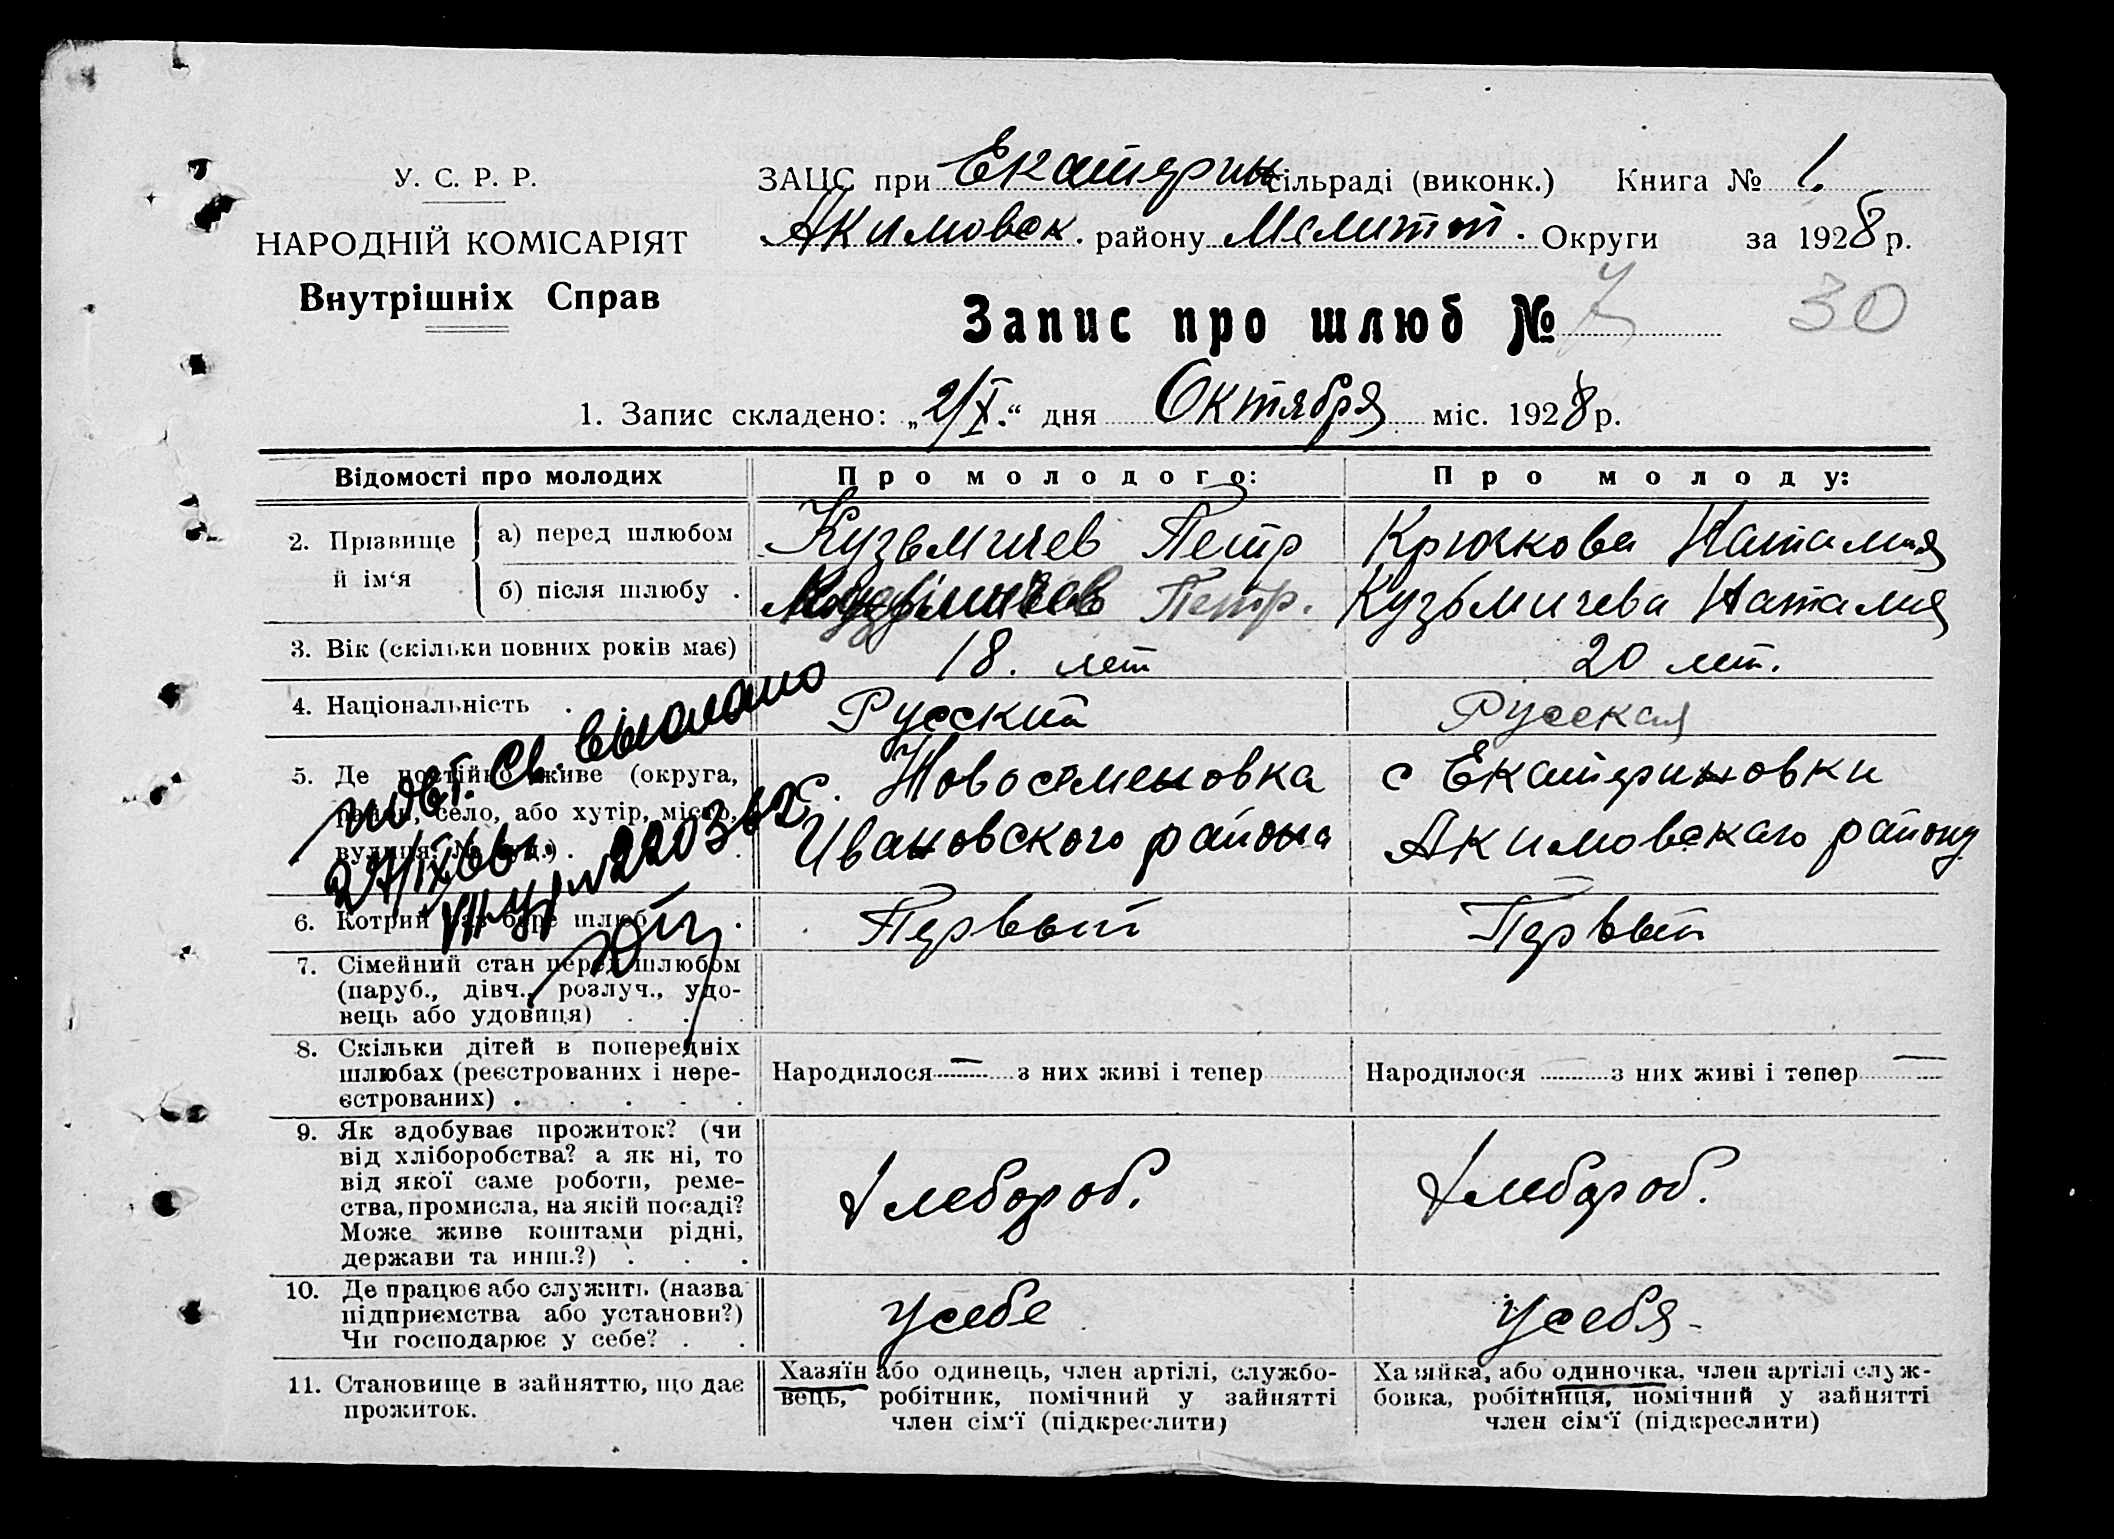 У. С. Р. Р.
НАРОДНІЙ КОМІСАРІЯТ
Внутрішніх Справ
ЗАЦС при Екатерин сільраді (виконк.) Книга № 1.
Акимовск. району Мелитоп. Округи за 1928 р.
Запис про шлюб № 7 30
1. Запис складено: „2/X.“ дня Октября міс. 1928 р.
Відомості про молодих Про молодого: Про молоду:
2. Прізвище й ім‘я
а) перед шлюбом Кузьмичев Петр Крючкова Наталия
б) після шлюбу . Кузьмичев Петр. Кузьмичева Наталия
3. Вік (скільки повних років має) 18. лет 20 лет.
4. Національність . Русский Русская
5. Де постійно живе (округа,
район, село, або хутір, місто,
вулиця, № буд.) .
с. Новосеменовка
Ивановского района
с Екатериновки
Акимовскаго району
повт. св. выслано
6. Котрий раз бере шлюб . Первый Первый
7. Сімейний стан перед шлюбом
(паруб., дівч., розлуч., удо-
вець або удовиця) . .
8. Скільки дітей в попередніх
шлюбах (реєстрованих і нере-
єстрованих) . . . . .
Народилося — з них живі і тепер
Народилося з них живі і тепер —
9. Як здобуває прожиток? (чи
від хліборобства? а як ні, то
від якої саме роботи, реме-
ства, промисла, на якій посаді?
Може живе коштами рідні,
держави та инш.?) . . .
Хлебороб.
Хлебороб.
10. Де працює або служить (назва
підприємства або установи?)
Чи господарює у себе? . .
У себе
У себя
11. Становище в зайняттю, що дає
прожиток.
Хазяїн або одинець, член артілі, службо-
вець, робітник, помічний у зайнятті
член сім‘ї (підкреслити)
Хазяйка, або одиночка, член артілі служ-
бовка, робітниця, помічний у зайнятті
член сім‘ї (підкреслити)